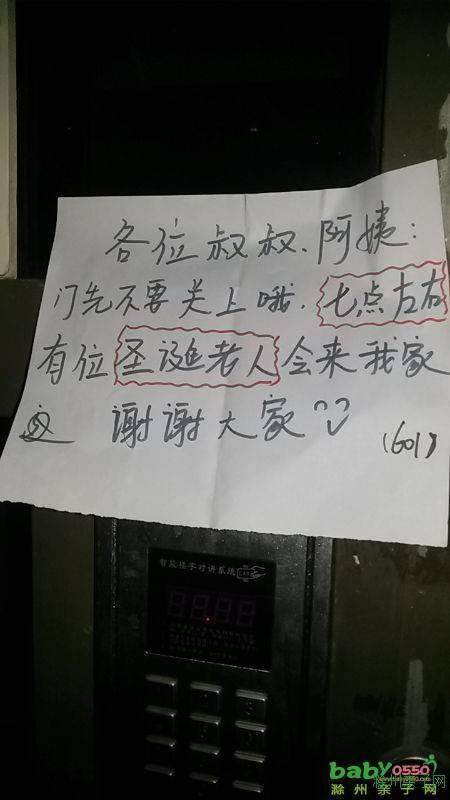 各位叔叔、阿姨：
门先不要关上哦，七点左右
有位圣诞老人会来我家
谢谢大家
(601)
智能楼宇对讲系统
baby0550
滁州亲子网